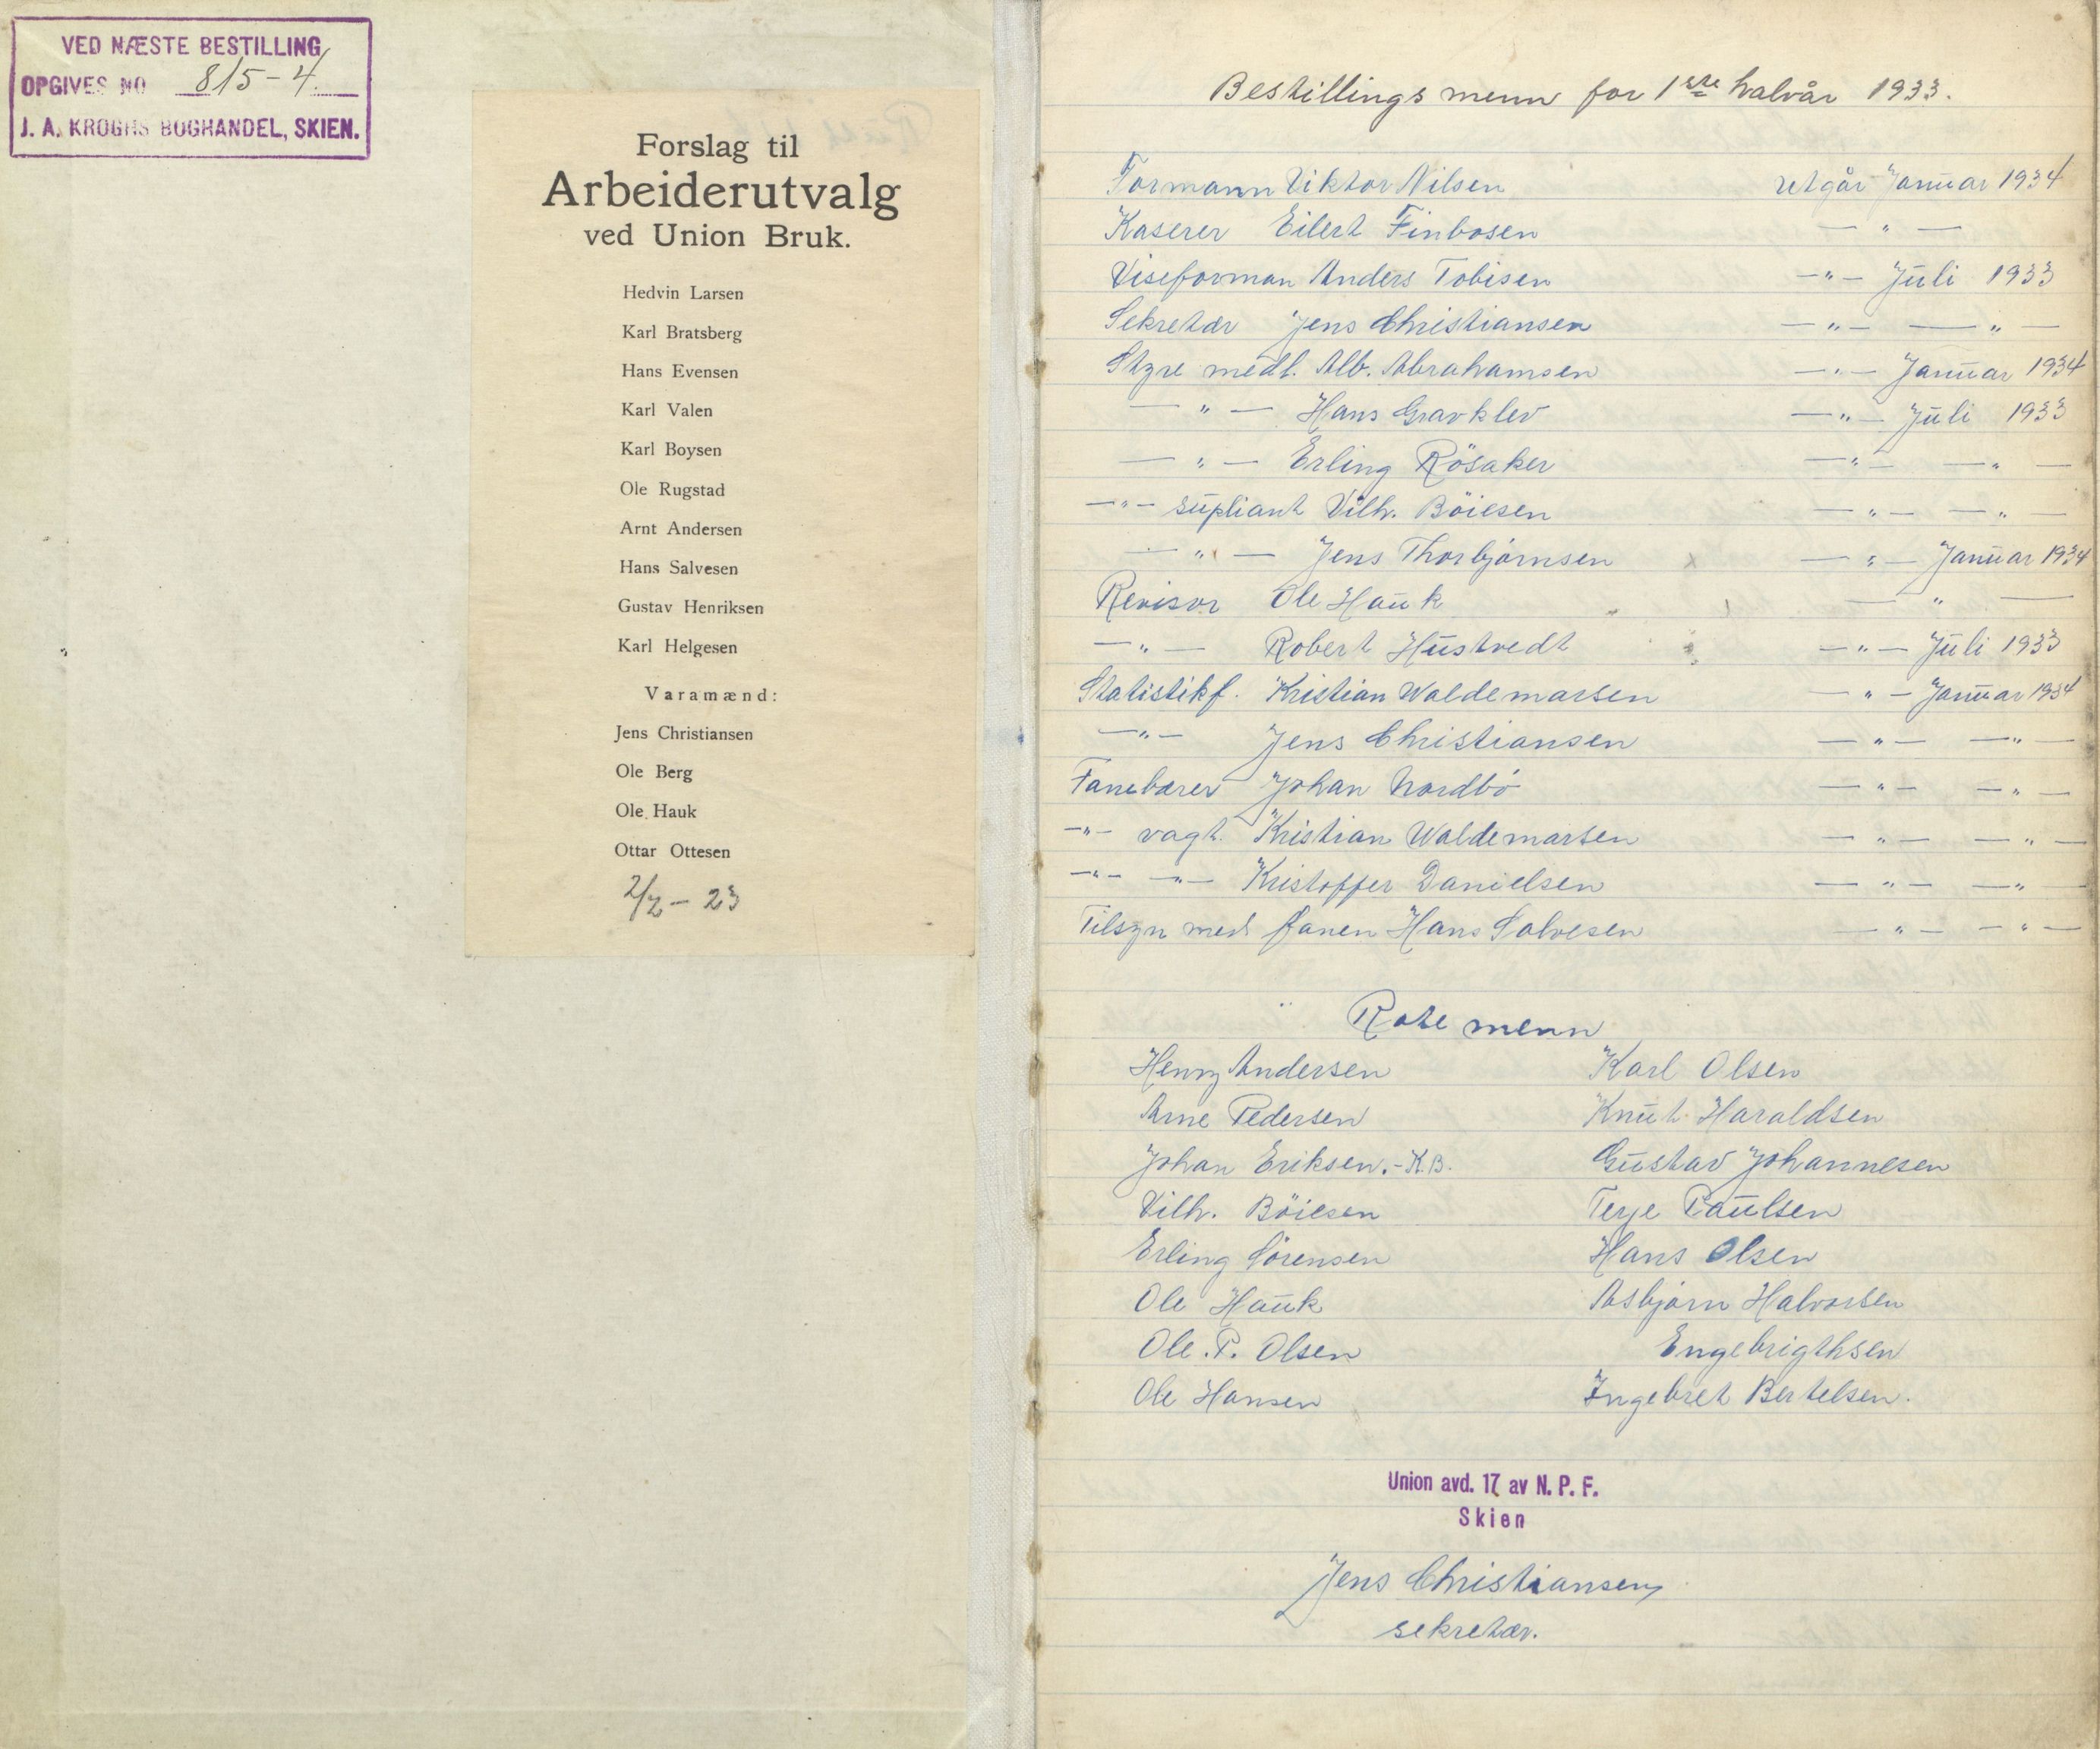 VED NÆSTE BESTILLING
OPGIVES NO 815-4.
J. A. KROGHS BOGHANDEL, SKIEN.
Forslag til
Arbeiderutvalg
ved Union Bruk.
Hedvin Larsen
Karl Bratsberg
Hans Evensen
Karl Valen
Karl Boysen
Ole Rugstad
Arnt Andersen
Hans Salvesen
Gustav Henriksen
Karl Helgesen
Varamænd:
Jens Christiansen
Ole Berg
Ole Hauk
Ottar Ottesen
2/2 - 23
Bestillings menn for 1ste halvår 1933.
Formann Viktor Nilsen utgår Januar 1934
Kaserer Eilert Finbosen — " —
Viseforman Anders Tobisen — " — Juli 1933
Sekretær Jens Christiansen — " — — " —
Styre medl. Alb. Abrahamsen — " — Januar 1934
— " — Hans Gravklev — " — Juli 1933
— " — Erling Rösaker — " — — " —
— " — supliant Vilh. Böiesen — " — — " —
— " — Jens Thorbjørnsen x — " — Januar 1934
Revisor Ole Hauk — " —
— " — Robert Hustvedt — " — Juli 1933
Statistikf. Kristian Waldemarsen — " — Januar 1934
— " — Jens Christiansen — " — — " —
Fanebærer Johan Nordbö — " — — " —
— " — vagt. Kristian Waldemarsen — " — — " —
— " — — " — Kristoffer Danielsen — " — — " —
Tilsyn med fanen Hans Salvesen — " — — " —
Rote menn
Henry Andersen Karl Olsen
Arne Pedersen Knut Haraldsen
Johan Eriksen.-K.B. Gustav Johannesen
Vilh. Böiesen Terje Paulsen
Erling Sörensen Hans Olsen
Ole Hauk Asbjørn Halvorsen
Ole. P. Olsen Engebrigthsen
Ole Hansen Ingebret Bertelsen.
Union avd. 17 av N. P. F.
Skien
Jens Christiansen
sekretær.